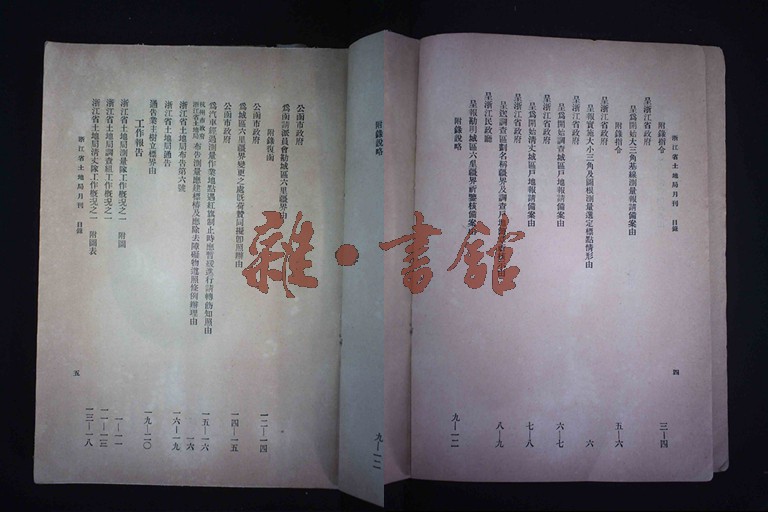 浙江省土地局月刊 目錄
四
附錄指令
呈浙江省政府
呈爲開始大三角基線測量報請備案由
三—四
附錄指令
呈浙江省政府
五—六
呈報實施大小三角及圖根測量選定標點情形由
六
呈浙江省政府
呈爲開始調查城區戶地報請備案由
六—七
呈浙江省政府
呈爲開始清丈城區戶地報請備案由
七—八
呈浙江省政府
八—九
呈浙江民政廳
呈報勘明城區六里疆界祈鑒核備案由
九—一二
附錄說略
附錄說略
九—一二
公函市政府
爲函請派員會勘城區六里疆界由
一二—一四
附錄復函
公函市政府
爲城區六里疆界變更之處既荷贊同擬即照辦由
一四—一五
公函市政府
爲汽車經過測量作業地點遇紅旗制止時應暫緩進行請轉飭知照由
一五—一六
杭州市政府
浙江省土地局
布告測量應建標樁及應除去障礙物遵照條例辦理由
一六
浙江省土地局布告第六號
一六—一九
浙江省土地局通告
通告業主樹立標界由
一九—二〇
工作報告
浙江省土地局測量隊工作概況之一 附圖
一—一一
浙江省土地局調查組工作概況之一
一一—一三
浙江省土地局清丈隊工作概況之一 附圖表
一三—一八
浙江省土地局月刊 目錄
五
雜·書館